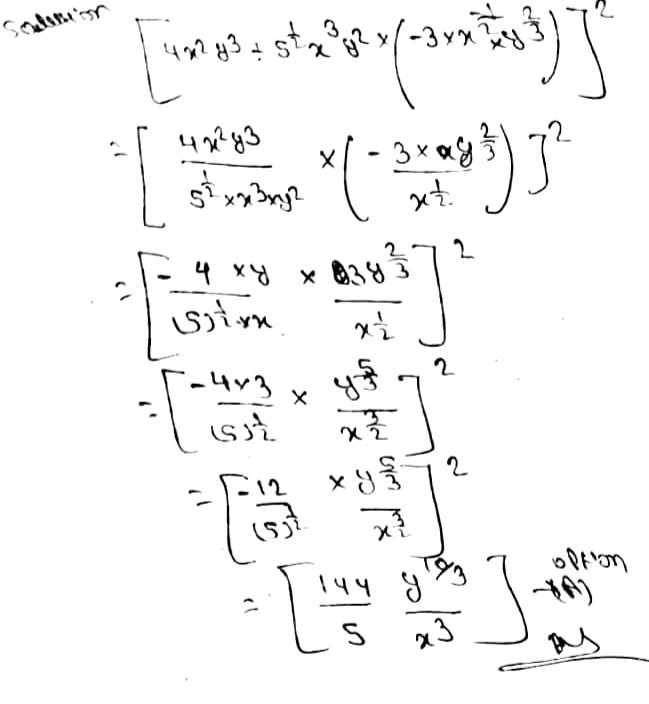 Solution [4x²y³ ÷ 5^{1/2} x³ y² × (-3 × x^{-1/2} × y^{2/3})]²
= [4x²y³ / 5^{1/2} × x³ × y² × (-3 × y^{2/3} / x^{1/2})]²
= [-4 × y / (5)^{1/2} × x × 3y^{2/3} / x^{1/2}]²
= [-4×3 / (5)^{1/2} × y^{5/3} / x^{3/2}]²
= [-12 / (5)^{1/2} × y^{5/3} / x^{3/2}]²
= [144/5 y^{10/3} / x³] option (A) Ans